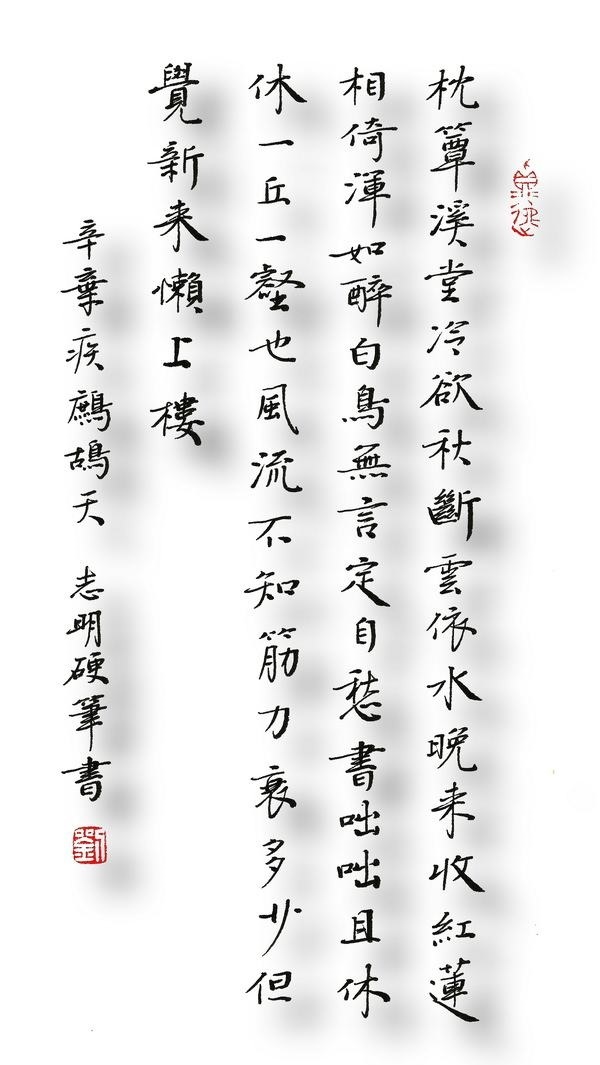 枕簟溪堂冷欲秋斷雲依水晚来收紅蓮
相倚渾如醉白鳥無言定自愁書咄咄且休
休一丘一壑也風流不知筋力衰多少但
覺新来懶上樓
辛棄疾鷓鴣天 志明硬筆書
劉